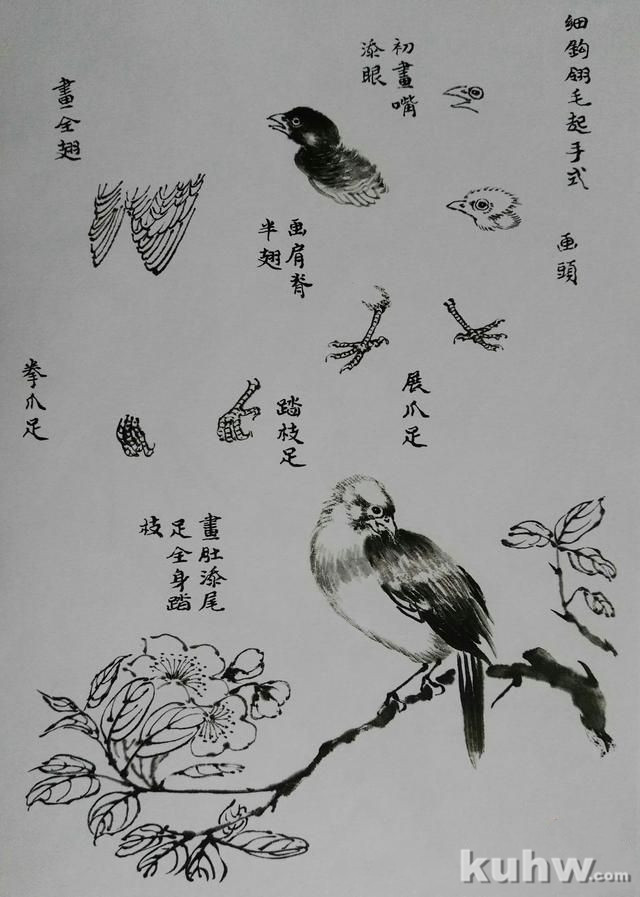 细鈎翎毛起手式
画頭
初畫嘴
添眼
畫全翅
画肩脊
半翅
展爪足
踏枝足
拳爪足
畫肚添尾
足全身踏
枝
kuhw.com